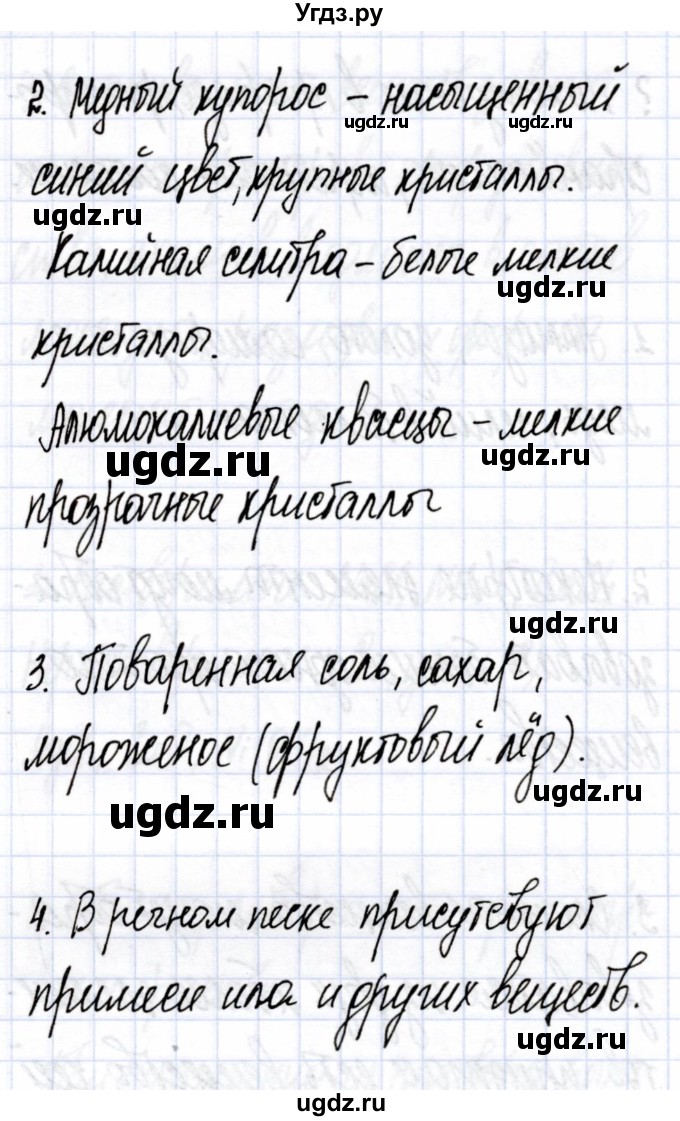 Угдз.ру
2. Медный купорос – насыщенный
ugdz.ru ugdz.ru
синий цвет, крупные кристаллы.
ugdz.ru
Калийная селитра – белые мелкие
ugdz.ru
кристаллы.
Алюмокалиевые квасцы – мелкие
ugdz.ru ugdz.ru
прозрачные кристаллы
ugdz.ru
3. Поваренная соль, сахар,
мороженое (фруктовый лёд).
ugdz.ru ugdz.ru
4. В речном песке присутсвуют
примеси ила и других веществ.
ugdz.ru
ugdz.ru